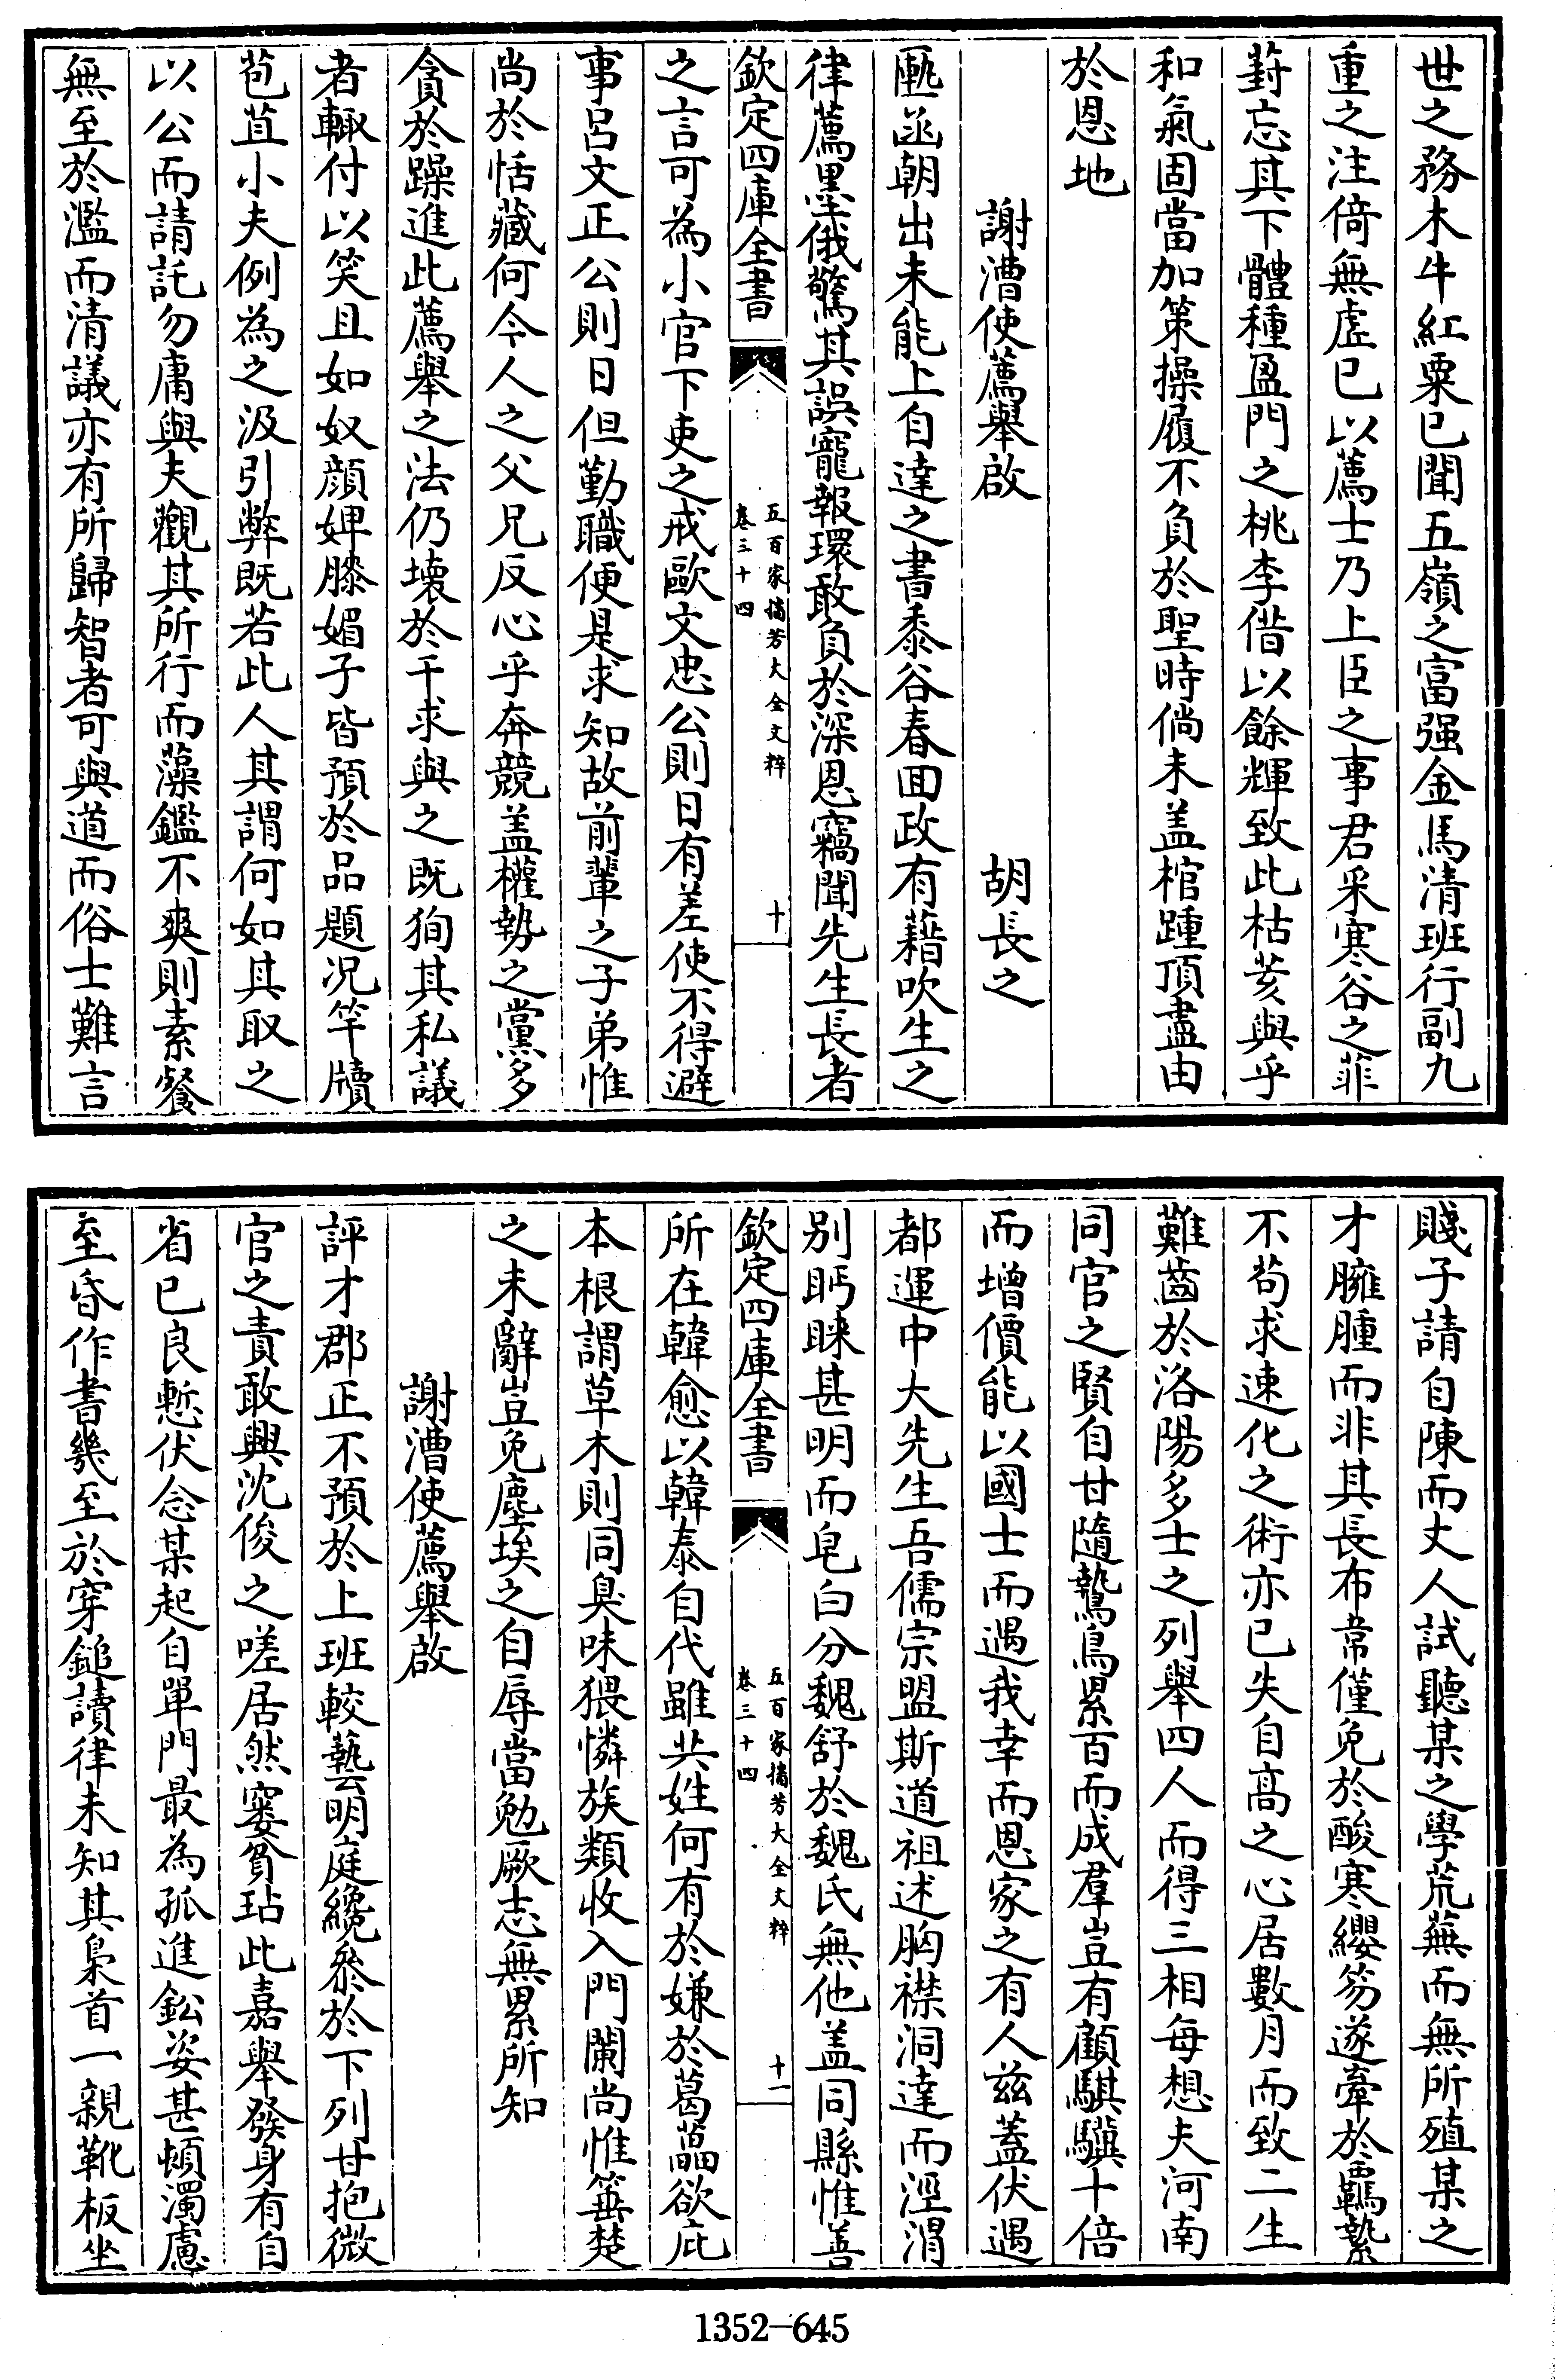 世之務木牛紅粟已聞五嶺之富强金馬清班行副九
重之注倚無虚已以薦士乃上臣之事君采寒谷之菲
葑忘其下體種盈門之桃李借以餘輝致此枯荄與乎
和氣固當加策操履不負於聖時倘未盖棺踵頂盡由
於恩地
謝漕使薦舉啟 胡長之
匭函朝出未能上自達之書黍谷春回政有藉吹生之
律薦墨俄驚其誤寵報環敢負於深恩竊聞先生長者
欽定四庫全書
五百家播芳大全文粹
卷三十四
十
之言可為小官下吏之戒歐文忠公則曰有差使不得避
事吕文正公則曰但勤職便是求知故前輩之子弟惟
尚於恬藏何今人之父兄反心乎奔競盖權勢之黨多
貪於躁進此薦舉之法仍壊於干求與之既狥其私議
者輙付以笑且如奴顔婢膝媚子皆預於品題况竿牘
苞苴小夫例為之汲引弊既若此人其謂何如其取之
以公而請託勿庸與夫觀其所行而藻鑑不爽則素餐
無至於濫而清議亦有所歸智者可與道而俗士難言
賤子請自陳而丈人試聽某之學荒蕪而無所殖某之
才臃腫而非其長布常僅免於酸寒纓笏遂牽於羈縶
不茍求速化之術亦已失自髙之心居數月而致二生
難齒於洛陽多士之列舉四人而得三相每想夫河南
同官之賢自甘隨鷙鳥累百而成羣豈有顧騏驥十倍
而增價能以國士而遇我幸而恩家之有人兹葢伏遇
都運中大先生吾儒宗盟斯道祖述胸襟洞達而涇渭
别眄睐甚明而皂白分魏舒於魏氏無他盖同縣惟善
欽定四庫全書
五百家播芳大全文粹
卷三十四
十一
所在韓愈以韓泰自代雖共姓何有於嫌於葛藟欲庇
本根謂草木則同臭味猥憐族類收入門闌尚惟箠楚
之未辭豈免塵埃之自辱當勉厥志無累所知
謝漕使薦舉啟
評才郡正不預於上班較藝明庭纔叅於下列甘抱微
官之責敢興沈俊之嗟居然窶貧玷此嘉舉發身有自
省已良慙伏念某起自單門最為孤進鈆姿甚頓濁慮
至昏作書幾至於穿鎚讀律未知其梟首一親靴板坐
1352-645